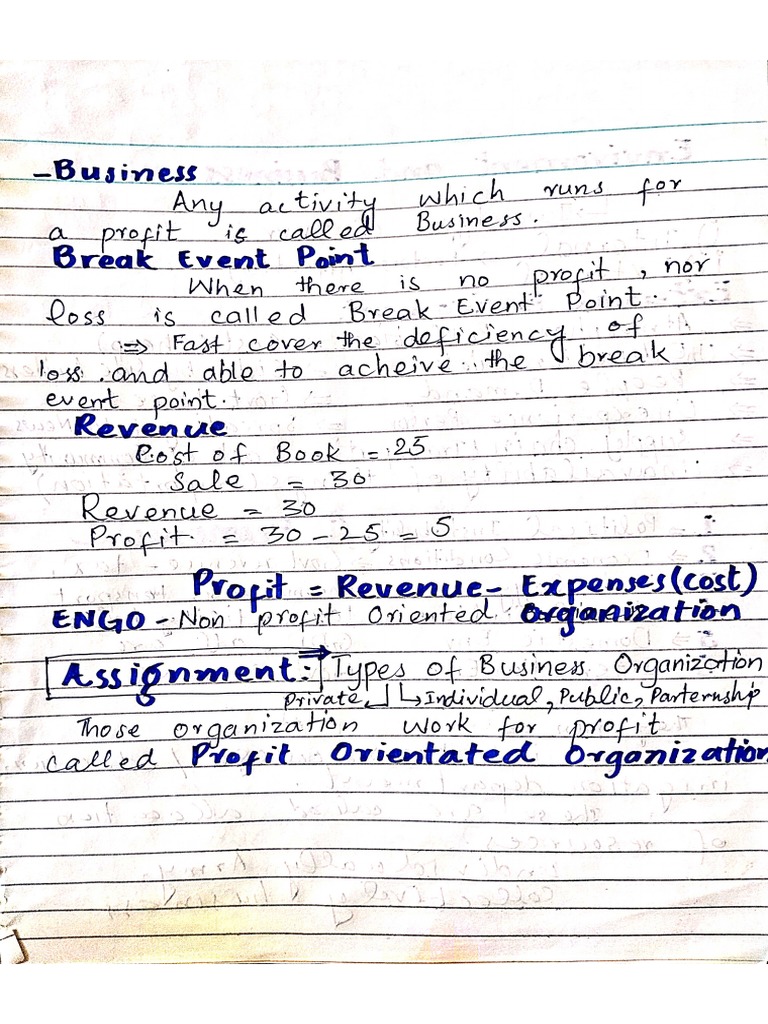 - Business
Any activity which runs for
a profit is called Business.
Break Event Point
When there is no profit, nor
loss is called Break Event Point.
⇒ Fast cover the deficiency of
loss and able to acheive the break
event point.
Revenue
Cost of Book = 25
Sale = 30
Revenue = 30
Profit = 30 - 25 = 5
Profit = Revenue - Expenses (cost)
ENGO - Non profit Oriented Organization
Assignment: ⇒ Types of Business Organization
Private ↲ ↳ Individual, Public, Parternship
Those organization work for profit
called Profit Orientated Organization